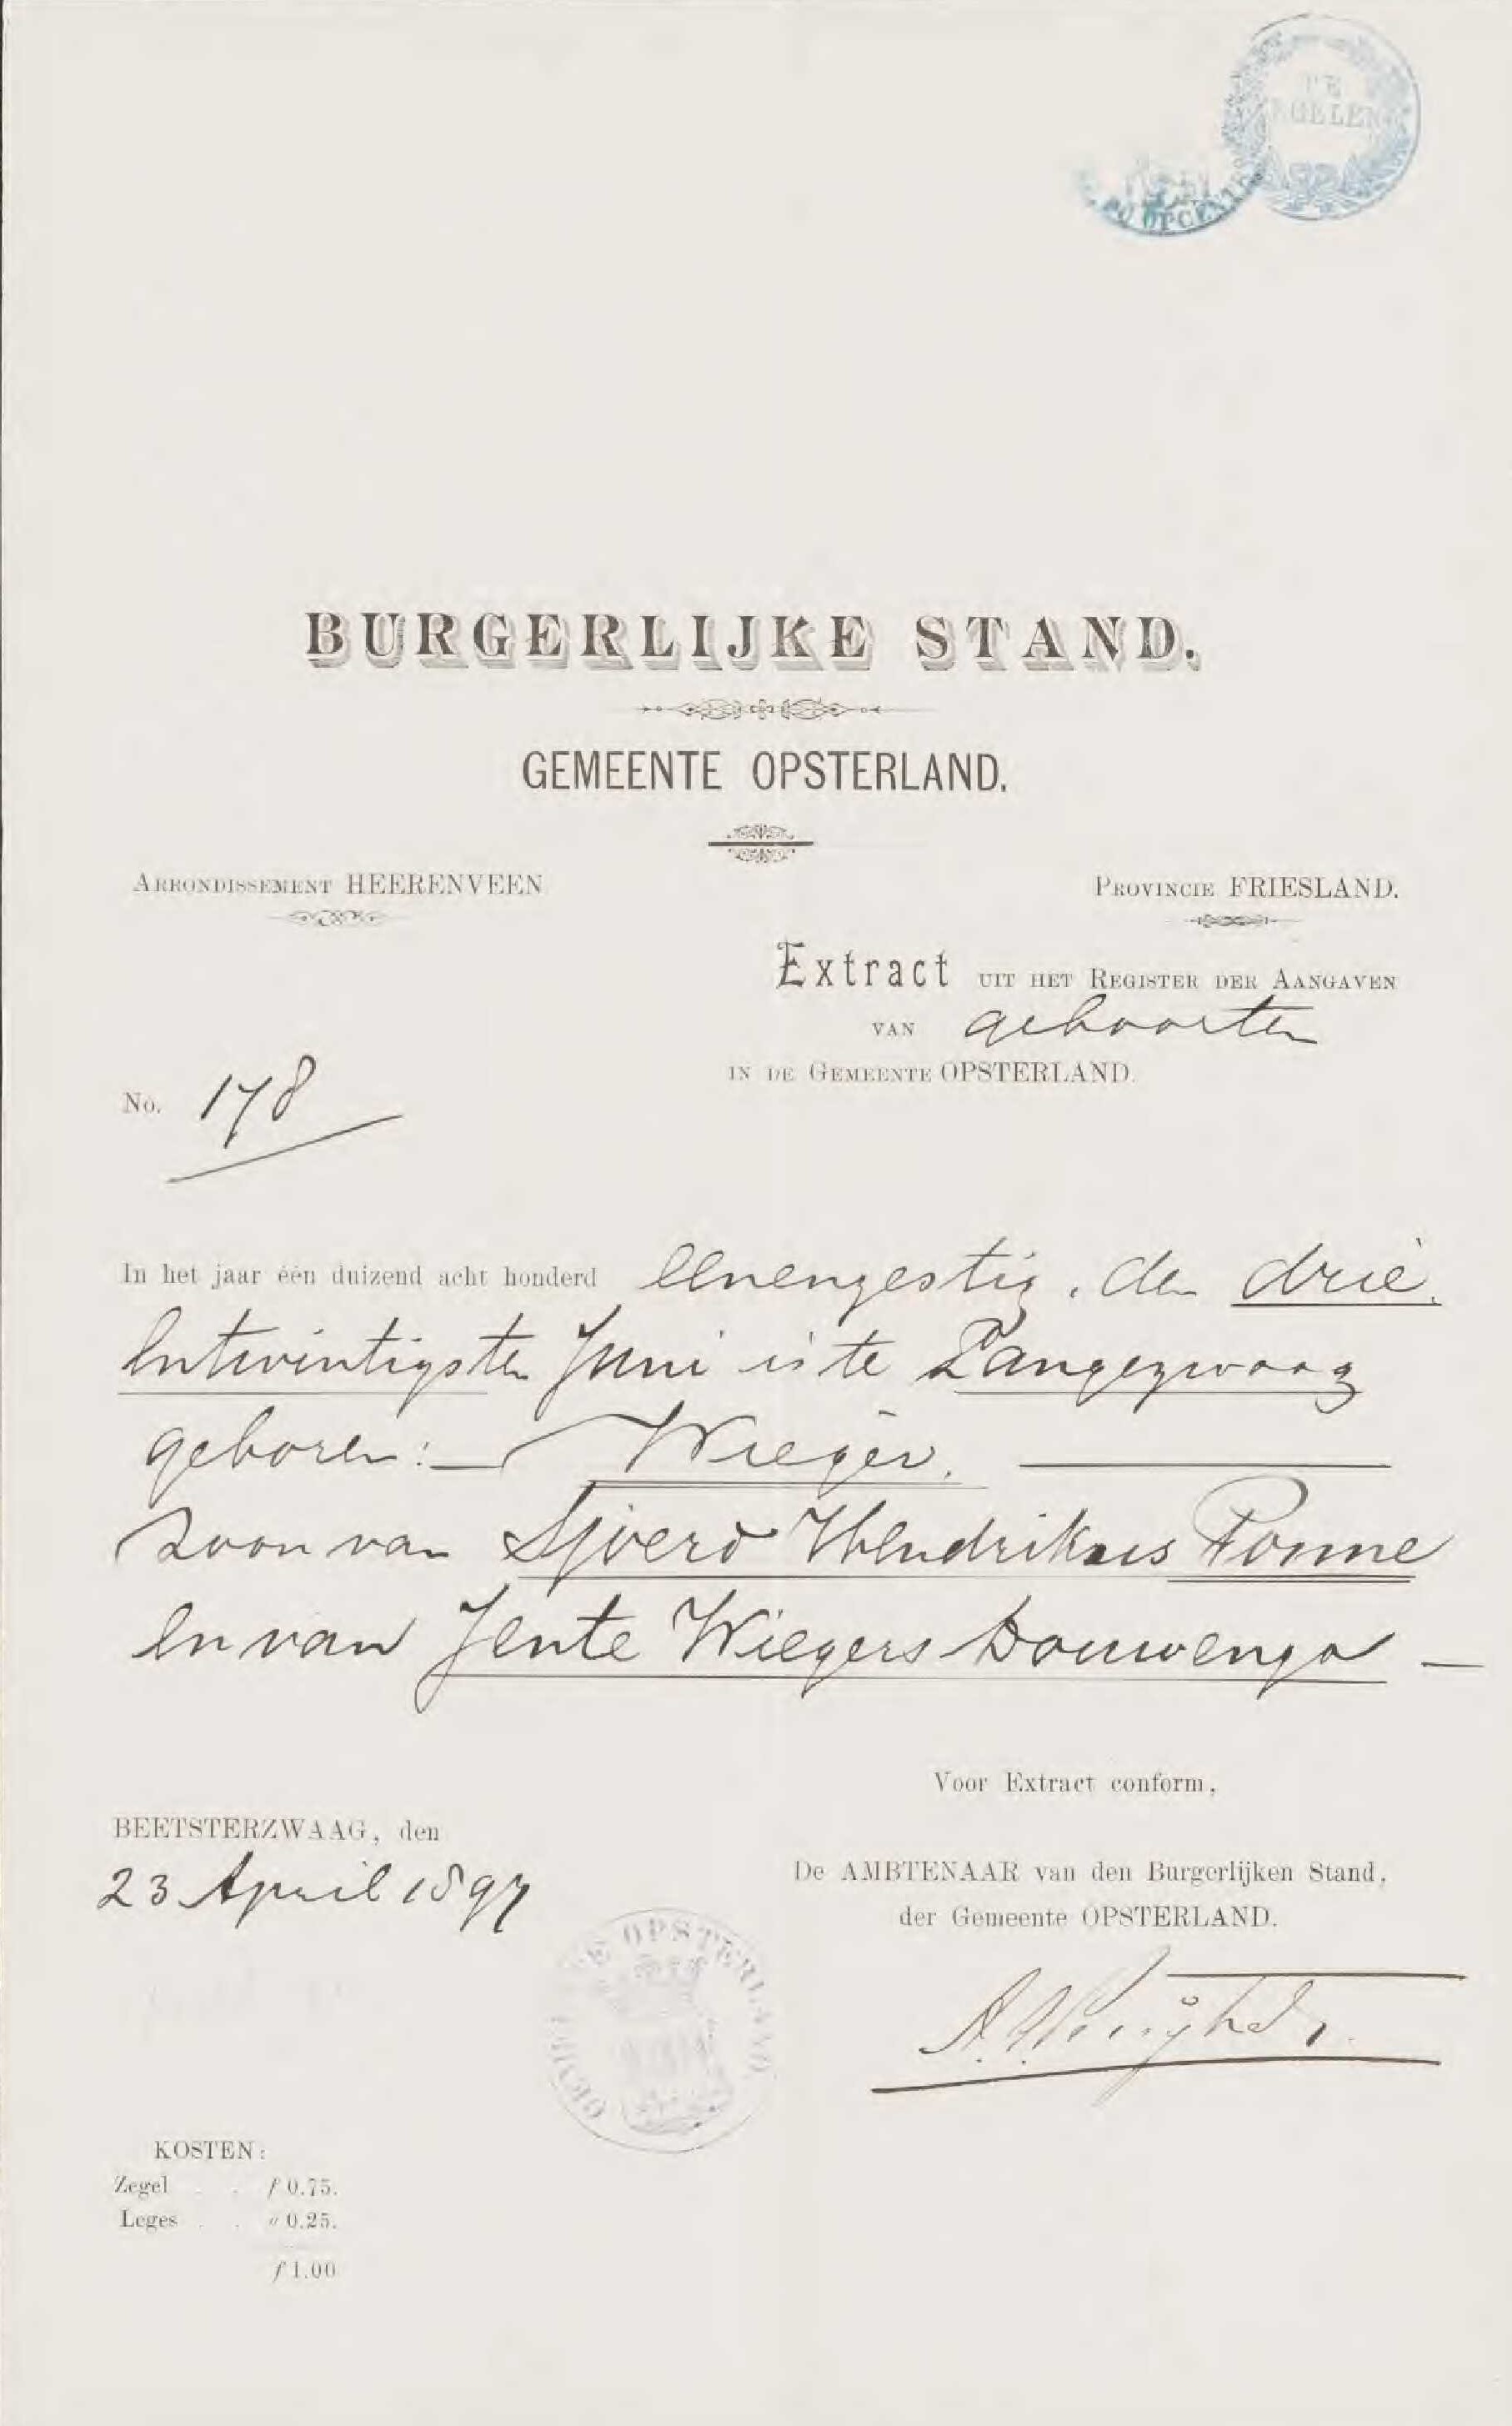 DE
ZEGELEN
OPCENTEN
BURGERLIJKE STAND.
GEMEENTE OPSTERLAND.
ARRONDISSEMENT HEERENVEEN
PROVINCIE FRIESLAND.
Extract UIT HET REGISTER DER AANGAVEN
VAN geboorten
IN DE GEMEENTE OPSTERLAND.
No. 178
In het jaar één duizend acht honderd eenenzestig, den drie
entwintigsten Juni is te Langezwaag
geboren: Wieger.
zoon van Sjoerd Hendrikus Pomme
en van Jente Wiegers Douwenga
Voor Extract conform,
BEETSTERZWAAG, den
23 April 1897
De AMBTENAAR van den Burgerlijken Stand,
der Gemeente OPSTERLAND.
OPSTERLAND
KOSTEN:
Zegel . . f 0.75.
Leges . . " 0.25.
f 1.00